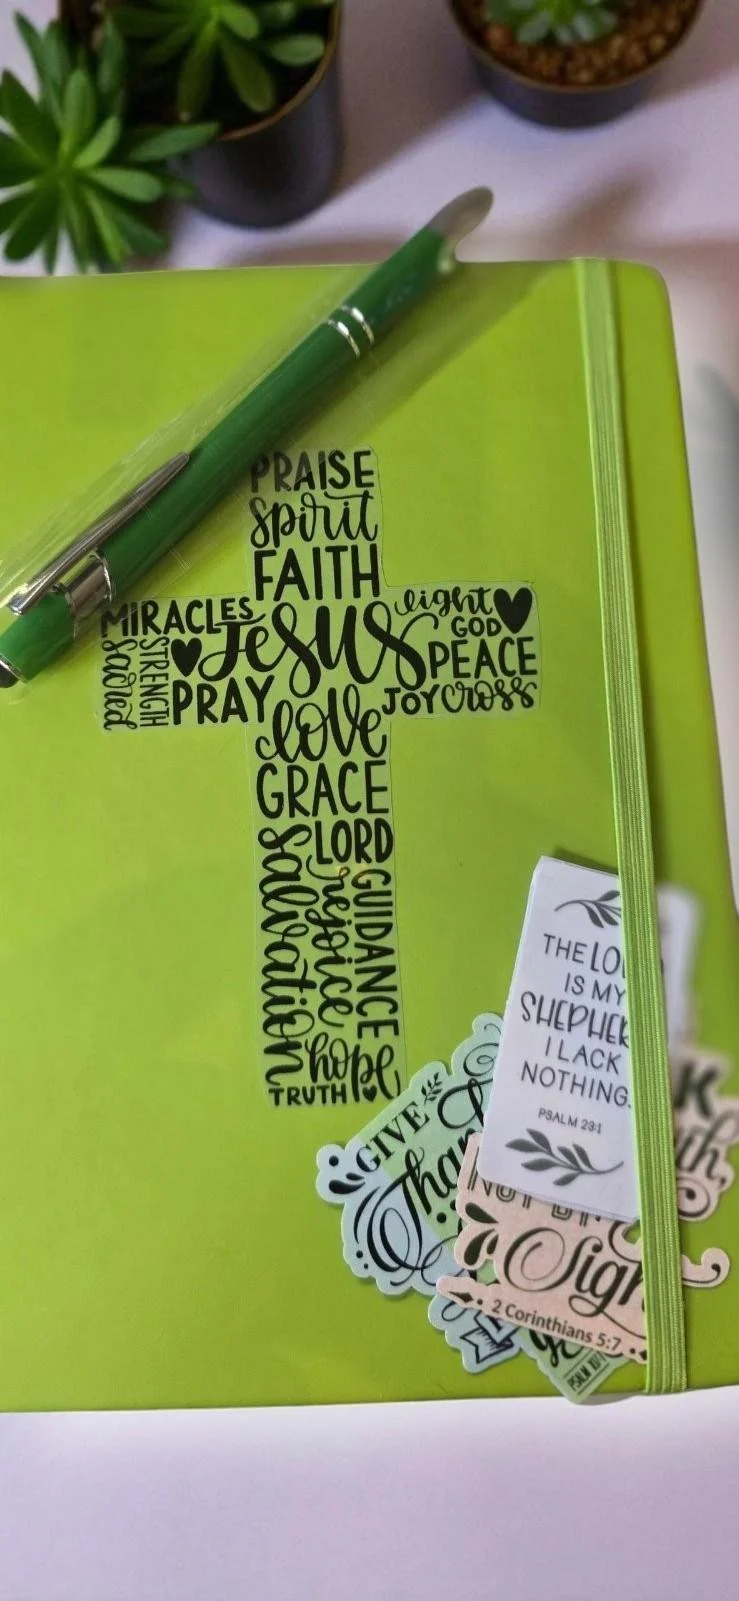 PRAISE
spirit
FAITH
MIRACLES
sacred
STRENGTH
JESUS
PRAY
light
GOD
PEACE
JOY cross
love
GRACE
LORD
salvation
rejoice
GUIDANCE
hope
TRUTH
THE LO
IS MY
SHEPHE
I LACK
NOTHING.
PSALM 23:1
GIVE
Tha
NOT BY
Sigh
2 Corinthians 5:7
PSALM